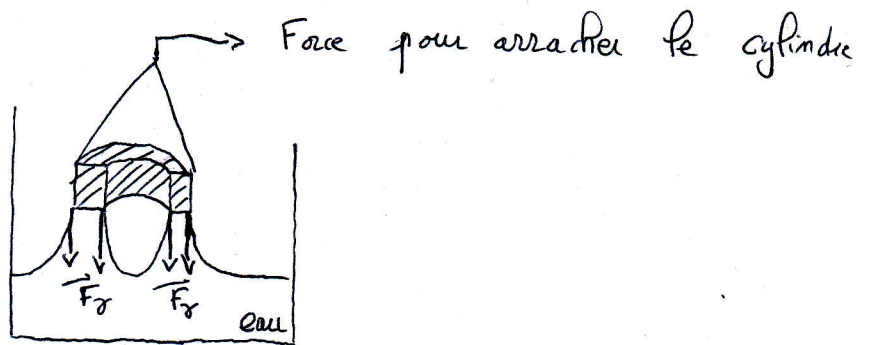 Force pour arracher le cylindre
Fγ Fγ
eau